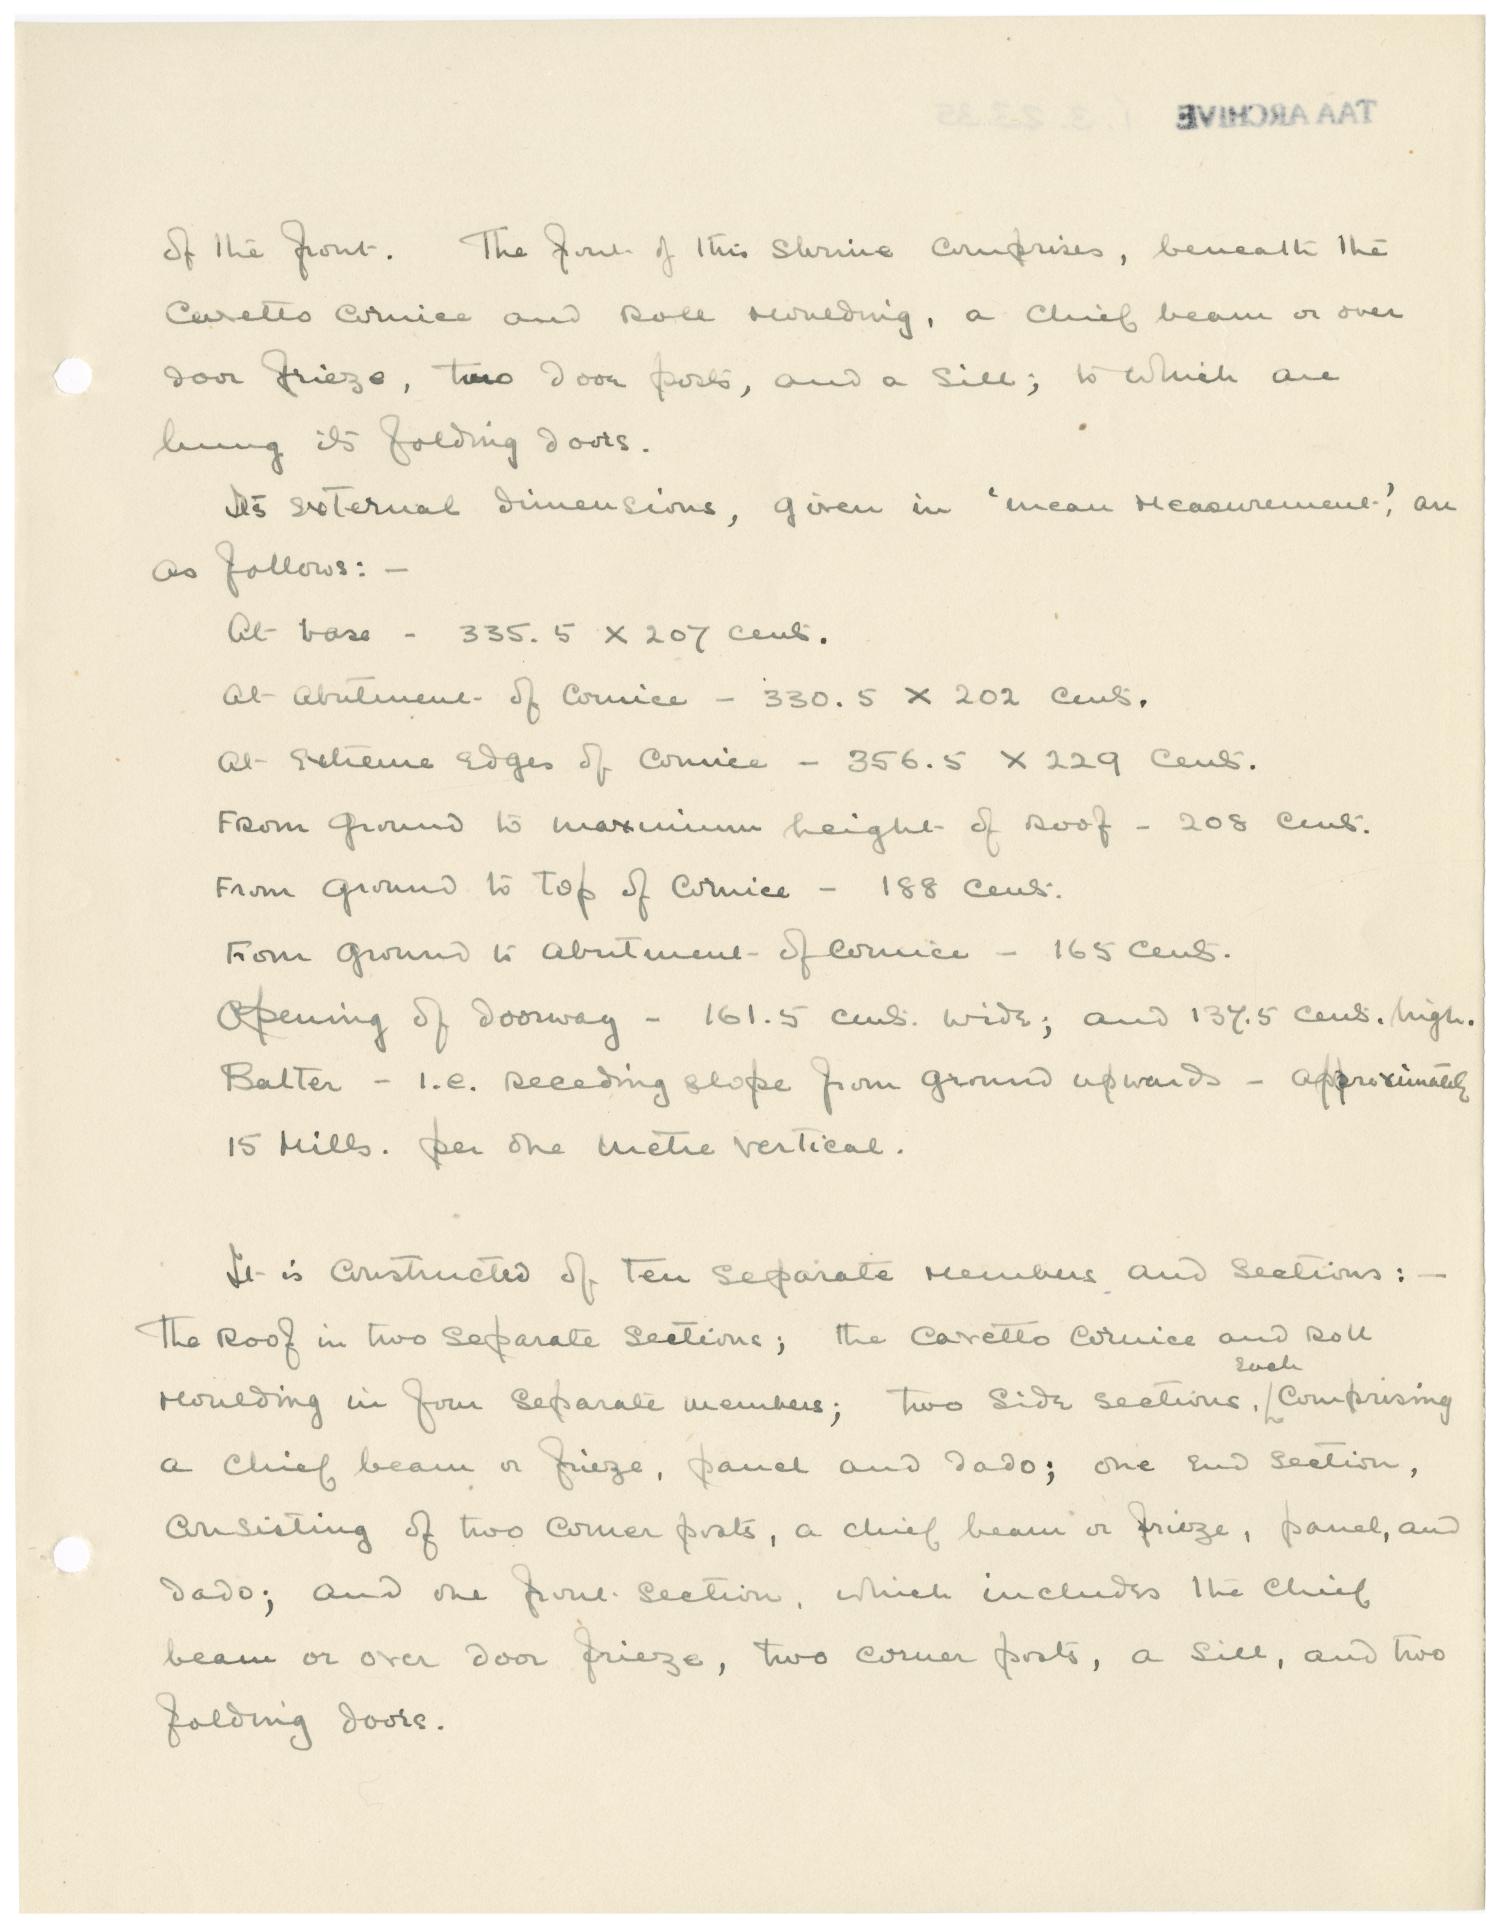 TAA ARCHIVE 1. 3. 23.35
of the front. The front of this shrine comprises, beneath the
Cavetto Cornice and Roll Moulding, a chief beam or over
door frieze, two door posts, and a Sill; to which are
hung its folding doors.
Its external dimensions, given in 'mean measurement', are
as follows: —
At base - 335.5 X 207 cents.
At Abutment of Cornice - 330.5 X 202 cents.
At Extreme Edges of Cornice - 356.5 X 229 cents.
From Ground to maximum height of Roof - 208 cents.
From Ground to Top of Cornice - 188 cents.
From Ground to Abutment of Cornice - 165 cents.
Opening of Doorway - 161.5 cents. wide; and 137.5 cents. high.
Batter - I.e. Receding slope from Ground upwards - approximately
15 Mills. per one metre vertical.
It is constructed of Ten Separate Members and Sections: —
The Roof in two Separate Sections; the Cavetto Cornice and Roll
Moulding in four Separate members; two Side sections, Each Comprising
a chief beam or frieze, panel and dado; one End Section,
consisting of two corner posts, a chief beam or frieze, panel, and
dado; and one front Section, which includes the chief
beam or over door frieze, two corner posts, a Sill, and two
folding doors.